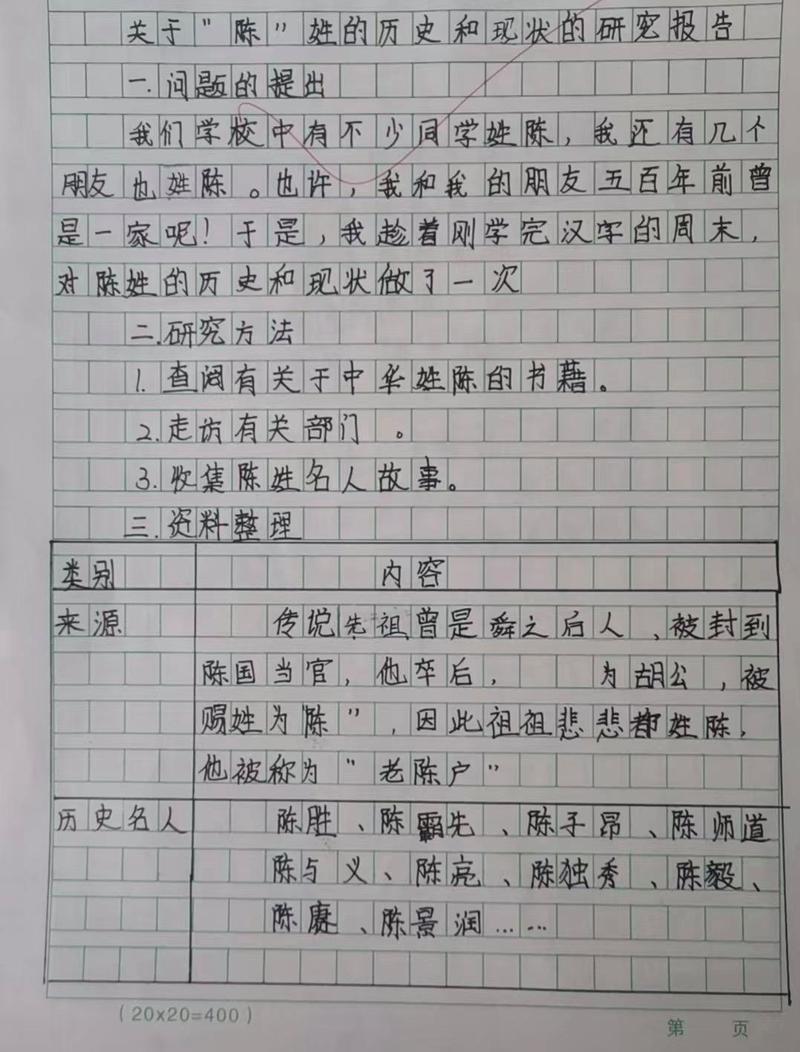 关于“陈”姓的历史和现状的研究报告
一.问题的提出
我们学校中有不少同学姓陈，我还有几个
朋友也姓陈。也许，我和我的朋友五百年前曾
是一家呢！于是，我趁着刚学完汉字的周末，
对陈姓的历史和现状做了一次
二.研究方法
1.查阅有关于中华姓陈的书藉。
2.走访有关部门。
3.收集陈姓名人故事。
三.资料整理
类别 内容
来源 传说先祖曾是舜之后人、被封到
陈国当官，他卒后， 为胡公，被
赐姓为“陈”，因此祖祖悲悲都姓陈，
他被称为“老陈户”
历史名人 陈胜、陈霸先、陈子昂、陈师道
陈与义、陈亮、陈独秀、陈毅、
陈赓、陈景润……
(20x20=400)
第 页